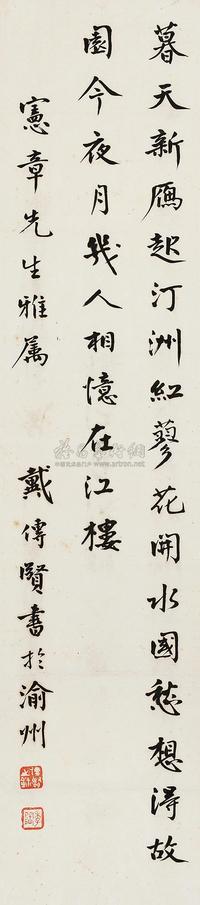 暮天新雁起汀洲紅蓼花開水國愁想得故
園今夜月幾人相憶在江樓
憲章先生雅属
戴傳賢書於渝州